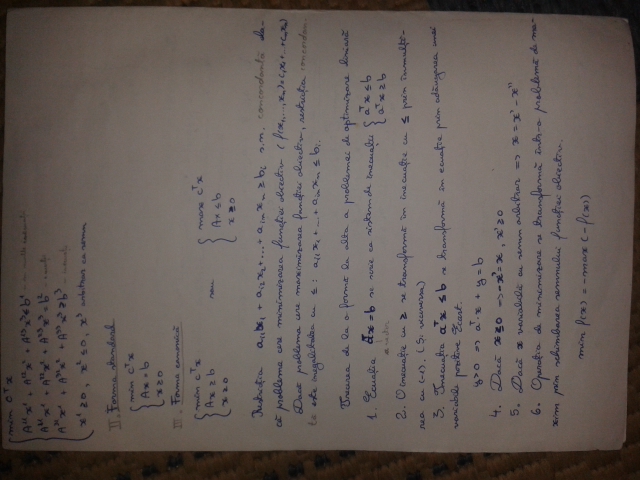 min cᵀx
A¹¹x¹ + A¹²x² + A¹³x³ ≤ b¹
A²¹x¹ + A²²x² + A²³x³ = b²
A³¹x¹ + A³²x² + A³³x³ ≥ b³
x¹ ≥ 0, x² ≤ 0, x³ arbitrar ca semn
II. Forma standard
min cᵀx
Ax = b
x ≥ 0
III. Forma canonică
min cᵀx
Ax ≥ b
x ≥ 0
sau
max cᵀx
Ax ≤ b
x ≥ 0
Restricția aᵢ₁x₁ + aᵢ₂x₂ + ... + aᵢₙxₙ ≥ bᵢ s.n. concordantă da-
că problema cere minimizarea funcției obiectiv (f(x₁,...,xₙ) = c₁x₁ + ... + cₙxₙ)
Dacă problema cere maximizarea funcției obiectiv, restricția concordan-
tă este inegalitatea cu ≤ : aᵢ₁x₁ + ... + aᵢₙxₙ ≤ bᵢ
Trecerea de la o formă la alta a problemei de optimizare liniară
1. Ecuația aᵀx = b se scrie ca sistem de inecuații
aᵀx ≤ b
aᵀx ≥ b
2. O inecuație cu ≥ se transformă în inecuație cu ≤ prin înmulți-
rea cu (-1). (Ș. viceversa)
3. Inecuația aᵀx ≤ b se transformă în ecuație prin adăugarea unei
variabile pozitive
y ≥ 0 ⇒ aᵀx + y = b
4. Dacă x ≤ 0 ⇒ -x' = x, x' ≥ 0
5. Dacă x variabilă cu semn arbitrar ⇒ x = x' - x''
6. Operația de minimizare se transformă într-o problemă de ma-
xim prin schimbarea semnului funcției obiectiv.
min f(x) = -max(-f(x))